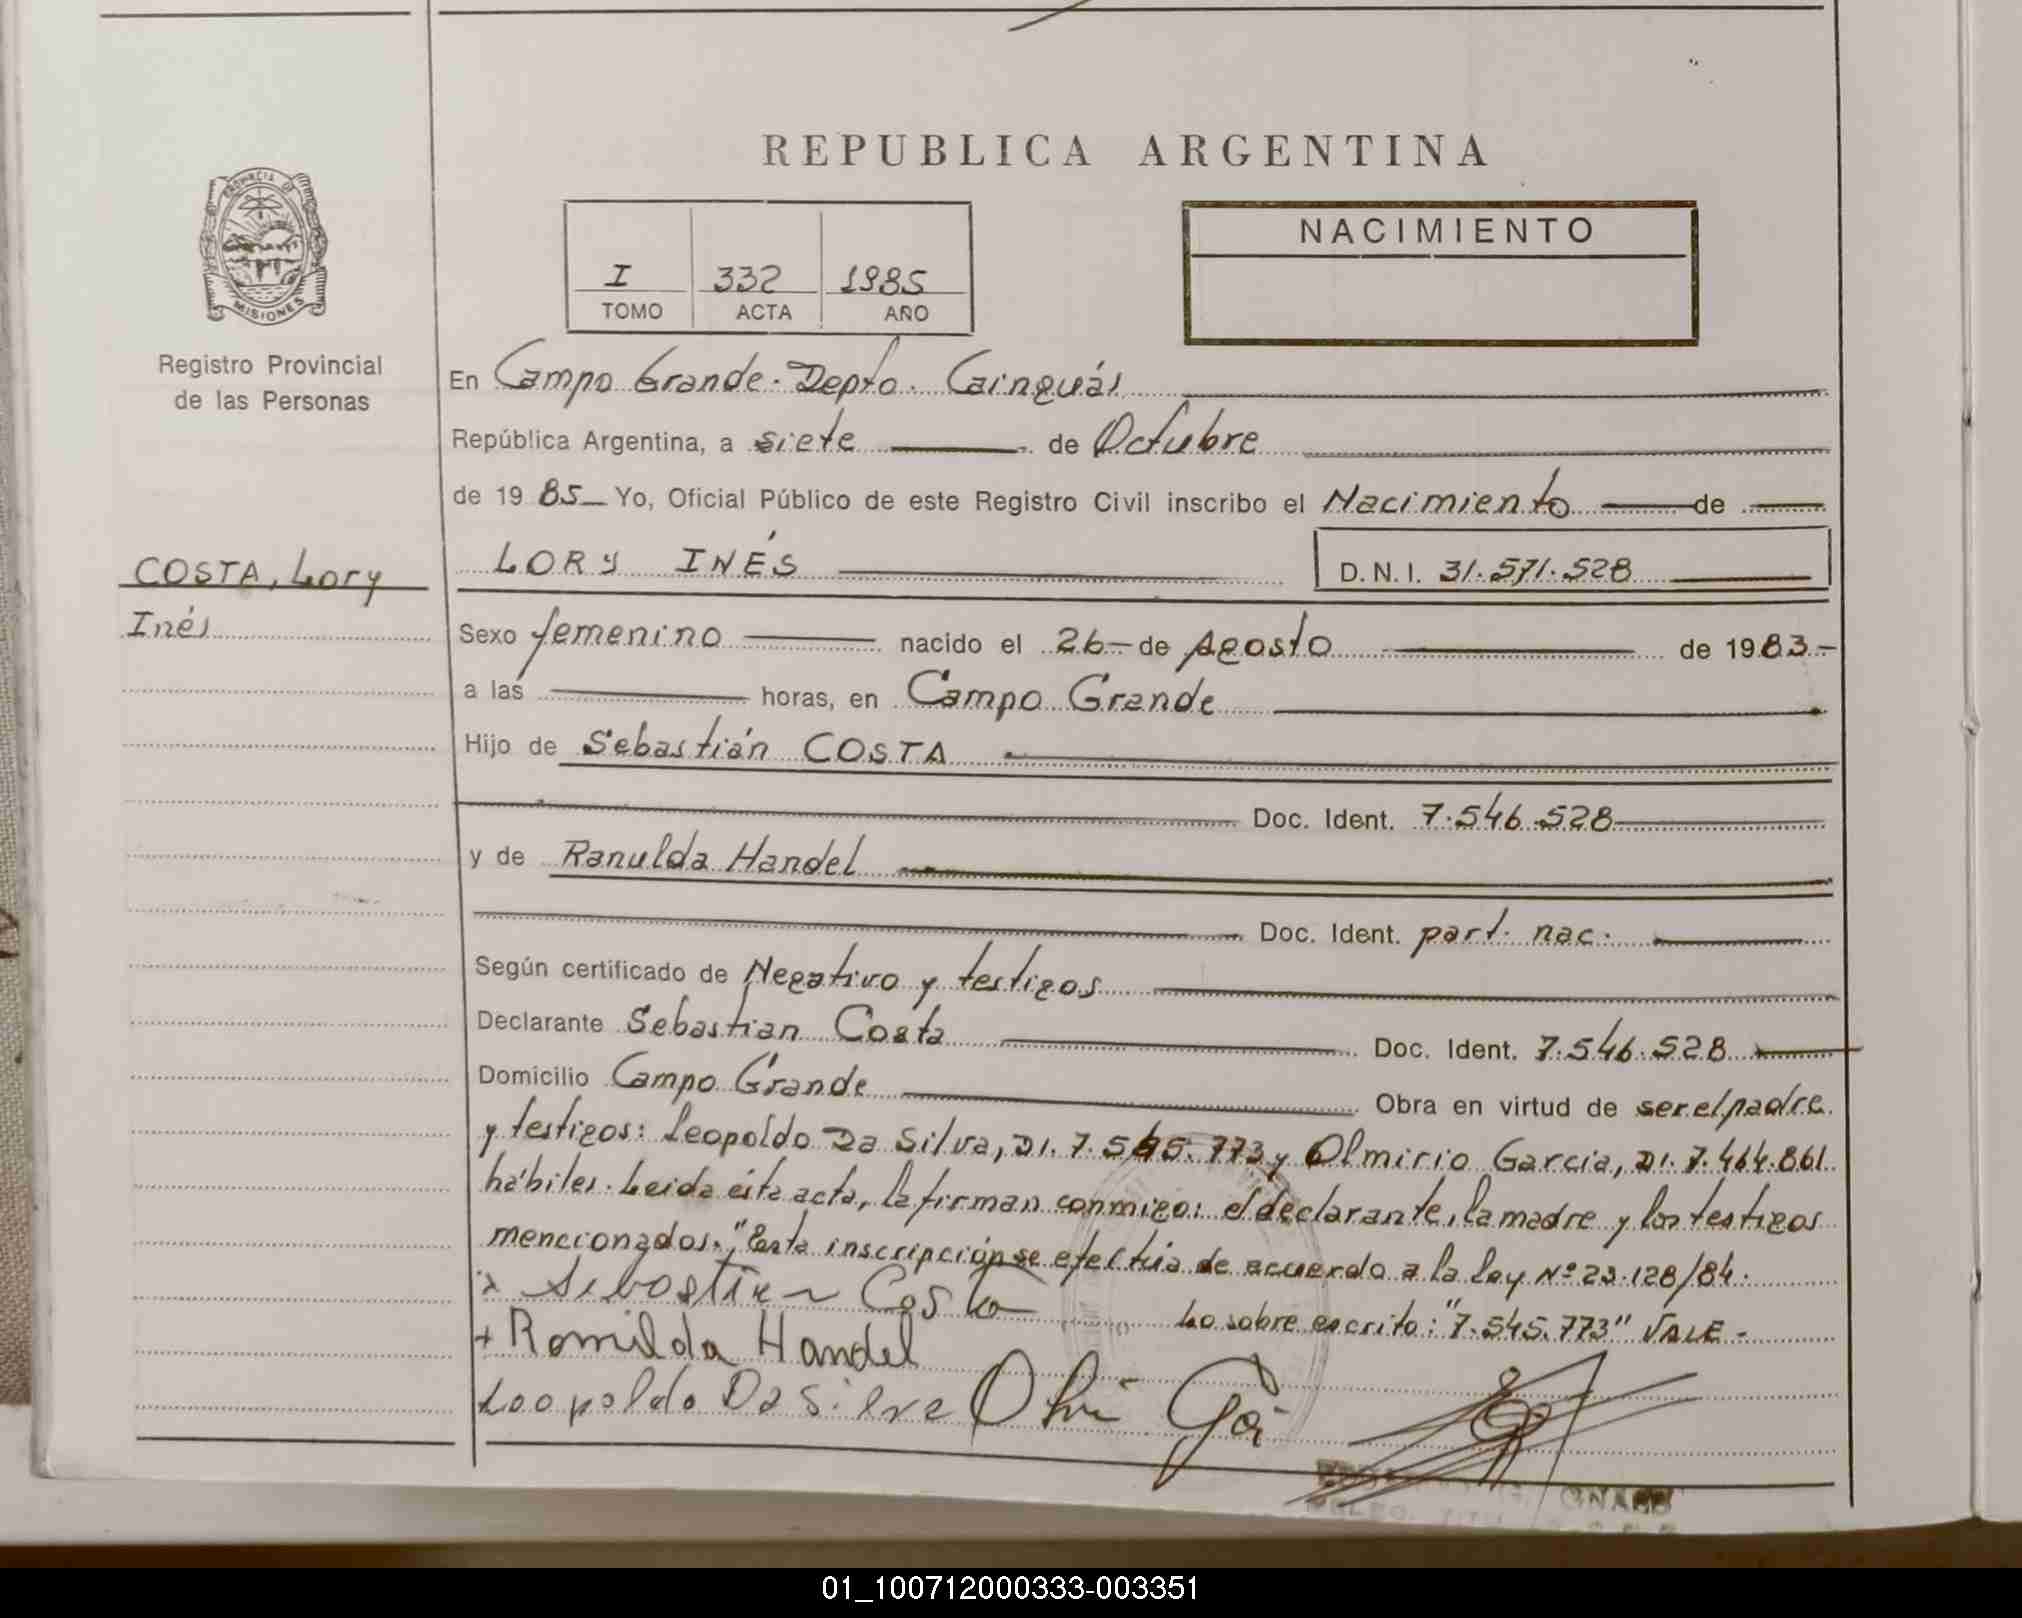 REPUBLICA ARGENTINA
PROVINCIA DE
MISIONES
Registro Provincial
de las Personas
I 332 1985
TOMO ACTA AÑO
NACIMIENTO
En Campo Grande - Depto. Cainguás
República Argentina, a siete de Octubre
de 1985 Yo, Oficial Público de este Registro Civil inscribo el Nacimiento de
COSTA, Lory
Inés
LORY INÉS D.N.I. 31.571.528
Sexo femenino nacido el 26 de Agosto de 1983.-
a las horas, en Campo Grande
Hijo de Sebastián COSTA
Doc. Ident. 7.546.528
y de Ranulda Handel
Doc. Ident. part. nac.
Según certificado de Negativo y testigos
Declarante Sebastian Costa Doc. Ident. 7.546.528
Domicilio Campo Grande Obra en virtud de ser el padre
y testigos: Leopoldo Da Silva, DI. 7.545.773 y Olmirio Garcia, DI. 7.464.861
hábiles. Leida esta acta, la firman conmigo: el declarante, la madre y los testigos
mencionados. "Esta inscripción se efectúa de acuerdo a la ley Nº 23.128/84.
Sebastian Costa Lo sobre escrito: "7.545.773" VALE -
+ Romilda Handel
Leopoldo Da Silva
01_100712000333-003351